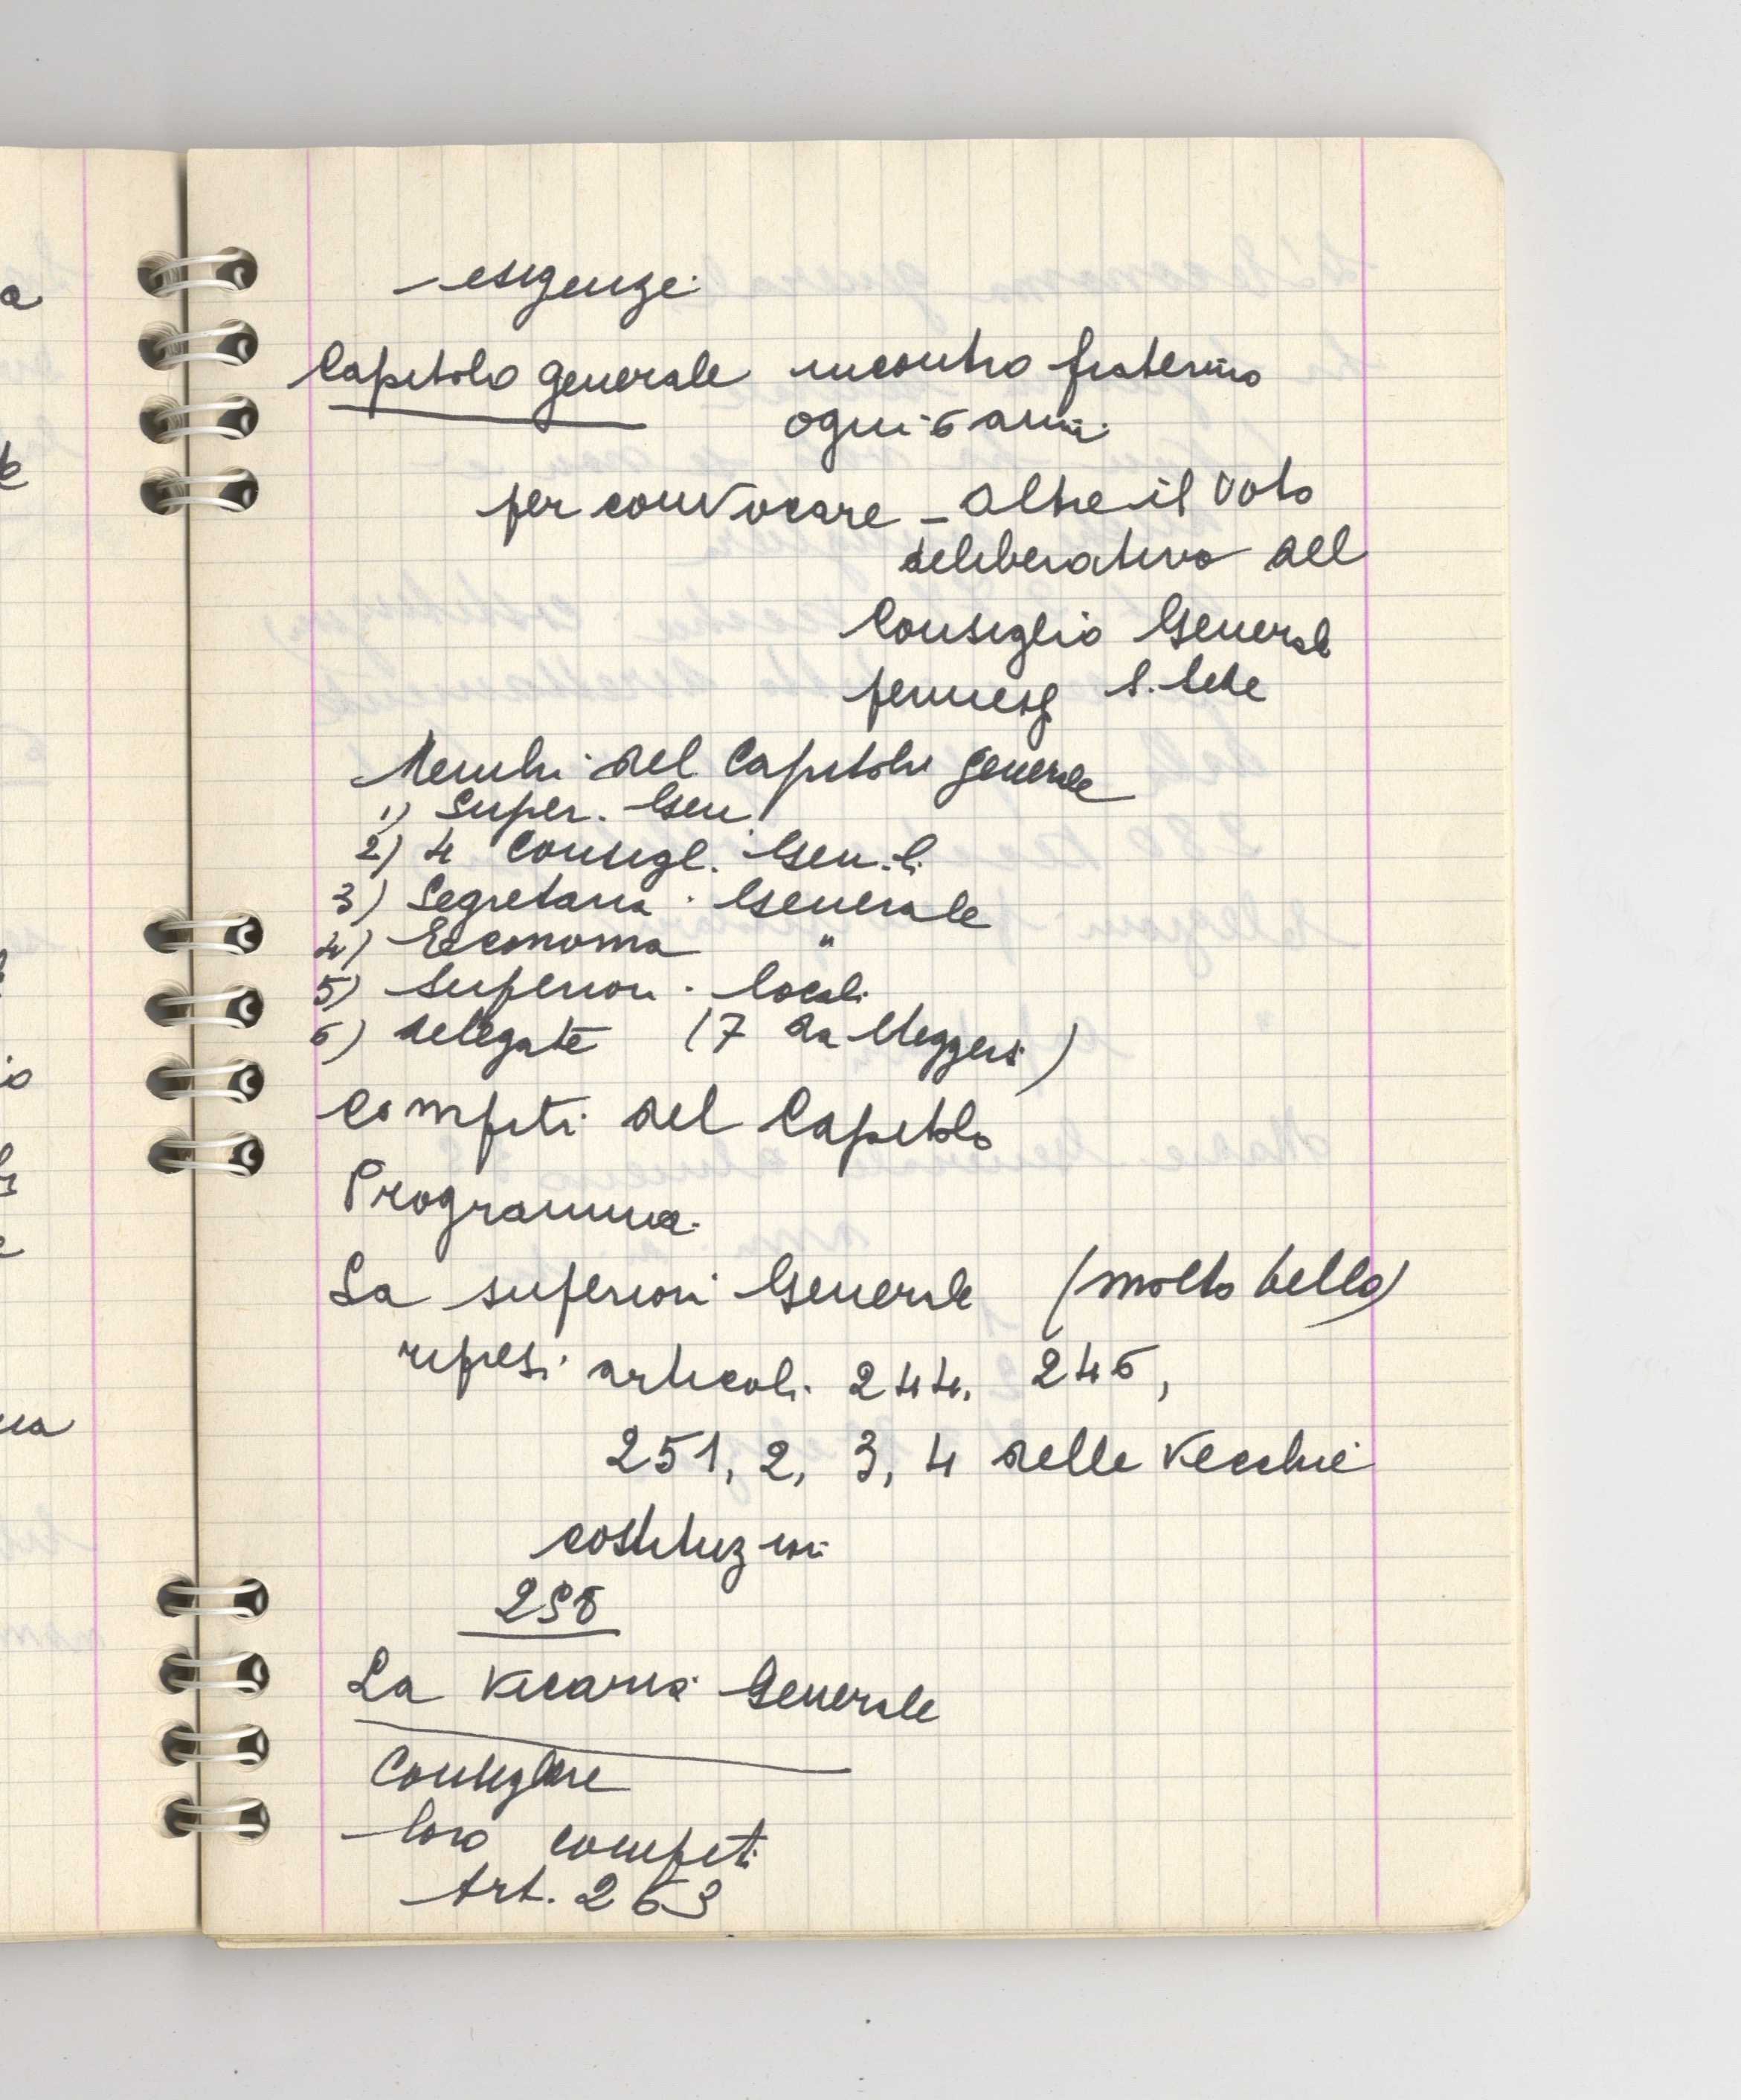 esigenze
Capitolo generale incontro fraterno
ogni 6 anni
per convocare - oltre il voto
deliberativo del
Consiglio General
permess S. Sede
Membri del Capitolo generale
1) Super. Gen.
2) 4 Consigl. Gen.li
3) Segretaria Generale
4) Economa "
5) Superiori locali
6) delegate (7 da eleggersi)
Compiti del Capitolo
Programma
La superiori Generale (molto bello)
ripresi articoli 244. 246,
251, 2, 3, 4 delle vecchie
costituzioni
La Vicaria Generale
Consigliere
loro compiti
Art. 263